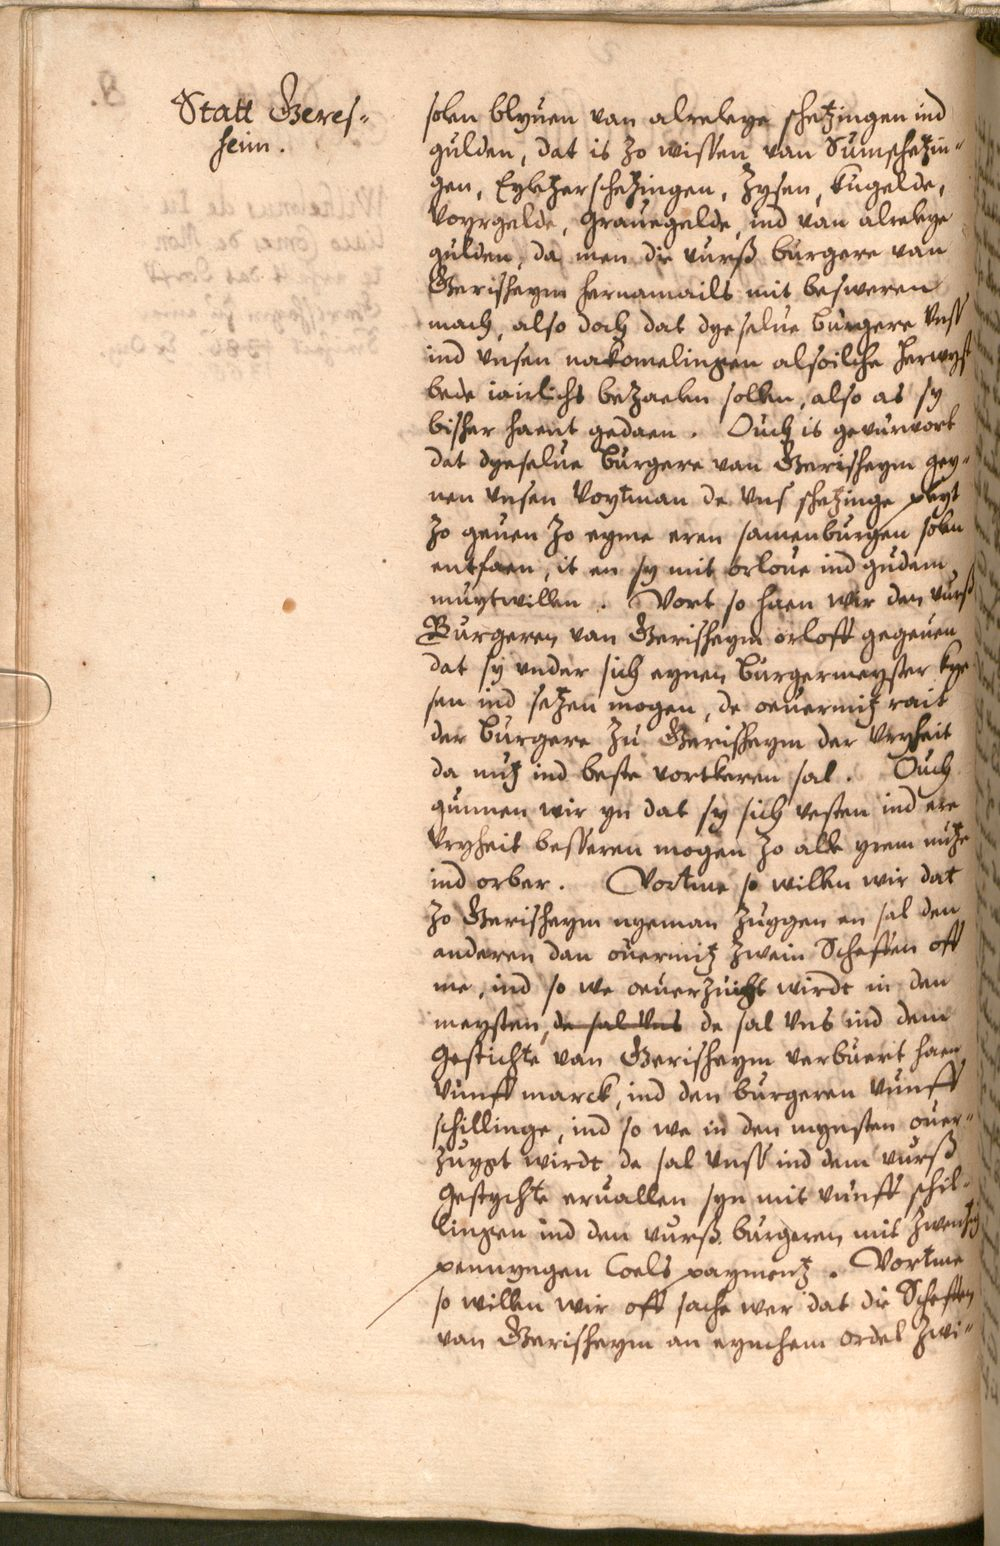 Statt Geres-
heim.
solen blyuen van alreleye schetzingen ind
gulden, dat is zo wissen van Sumschetzin-
gen, Eyletzerschetzingen, Zysen, kugelde,
Voyrgelde, Grauegelde, ind van alreleye
gulden, da men die vurß burgere van
Gerisheym hernamails mit besweren
mach, also doch dat dyeselue burgere Vnss
ind vnsen nakomelingen alsoilche herwyst
bede iairlichs betzaelen sollen, also as sy
bisher haent gedaen. Ouch is gevurwort
dat dyeselue Burgere van Gerisheym gey-
nen vnsen Voytman de vns schetzinge pleyt
zo geuen zo eyme eren samenburgen solen
entfaen, it en sy mit orloue ind gudem
muytwillen. Vort so haen wir den vurß
Burgeren van Gerisheym orloff gegeuen
dat sy vnder sich eynen Burgermeyster kye
sen ind setzen mogen, de oeuermitz rait
der Burgere zu Gerisheym der Vryheit
da nutz ind beste vortkeren sal. Ouch
gunnen wir yn dat sy sich vesten ind ere
Vryheit besseren mogen zo alle yrem nutze
ind orber. Vortme so willen wir dat
zo Gerisheym nyeman zuygen en sal den
anderen dan ouermitz zwein Scheffen off
me, ind so we oeuerzuicht wirdt in den
meysten, de sal vns de sal Vns ind dem
Gestichte van Gerisheym verbuert haen
Vunff marck, ind den burgeren vunff
schillinge, ind so we in den mynsten ouer-
zuygt wirdt de sal vnss ind dem vurß
Gestychte eruallen syn mit vunff schil-
lingen ind den vurß. burgeren mit zwentzig
pennyngen Coels payments. Vortme
so willen wir off sache wer dat die Scheffen
van Gerisheym an eynchem ordel zwi-